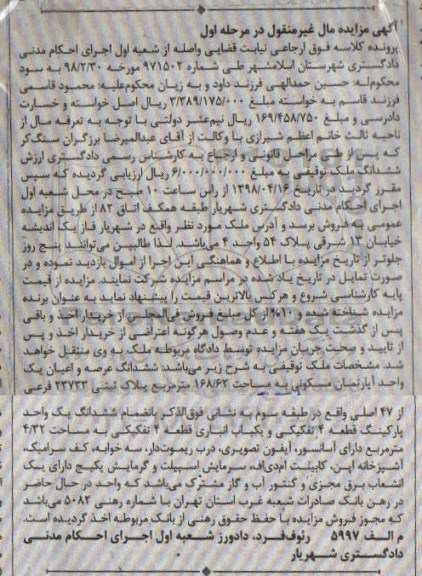 آگهی مزایده مال غیرمنقول در مرحله اول
پرونده کلاسه فوق ارجاعی نیابت قضایی واصله از شعبه اول اجرای احکام مدنی
دادگستری شهرستان اسلامشهر طی شماره ۹۷۱۵۰۲ مورخه ۹۸/۲/۳۰ به سود
محکوم‌له: حسین حمدالهی فرزند داود و به زیان محکوم‌علیه: محمود قاسمی
فرزند قاسم به خواسته مبلغ ۳/۳۸۹/۱۷۵/۰۰۰ ریال اصل خواسته و خسارت
دادرسی و مبلغ ۱۶۹/۴۵۸/۷۵۰ ریال نیم‌عشر دولتی با توجه به تعرفه مال از
ناحیه ثالث خانم اعظم شیرازی با وکالت از آقای عبدالمیرضا برزگران سنگ‌کر
که پس از طی مراحل قانونی و ارجاع به کارشناس رسمی دادگستری ارزش
ششدانگ ملک توقیفی به مبلغ ۶/۰۰۰/۰۰۰/۰۰۰ ریال ارزیابی گردیده که سپس
مقرر گردید در تاریخ ۱۳۹۸/۰۴/۱۶ از راس ساعت ۱۰ صبح در محل شعبه اول
اجرای احکام مدنی دادگستری شهریار طبقه همکف اتاق ۸۲ از طریق مزایده
عمومی به فروش برسد و آدرس ملک مورد نظر واقع در شهریار فاز یک اندیشه
خیابان ۱۳ شرقی پلاک ۵۴ واحد ۴ می‌باشد. لذا طالبین می‌توانند پنج روز
جلوتر از تاریخ مزایده با اطلاع و هماهنگی این اجرا از اموال بازدید نموده و در
صورت تمایل در تاریخ یاد شده در مراسم مزایده شرکت نمایند. مزایده از قیمت
پایه کارشناسی شروع و هرکس بالاترین قیمت را پیشنهاد نماید به عنوان برنده
مزایده شناخته شده و ۱۰% از کل مبلغ فروش فی‌المجلس از خریدار اخذ و باقی
پس از گذشت یک هفته و عدم وصول هرگونه اعتراضی از خریدار اخذ و پس
از تایید و صحت جریان مزایده توسط دادگاه مربوطه ملک به وی منتقل خواهد
شد. مشخصات ملک توقیفی به شرح زیر می‌باشد: ششدانگ عرصه و اعیان یک
واحد آپارتمان مسکونی به مساحت ۱۶۸/۶۲ مترمربع پلاک ثبتی ۲۳۷۳۳ فرعی
از ۴۷ اصلی واقع در طبقه سوم به نشانی فوق‌الذکر بانضمام ششدانگ یک واحد
پارکینگ قطعه ۴ تفکیکی و یکباب انباری قطعه ۴ تفکیکی به مساحت ۴/۳۲
مترمربع دارای آسانسور، آیفون تصویری، درب ریموت‌دار، سه خوابه، کف سرامیک،
آشپزخانه اپن، کابینت ام‌دی‌اف، سرمایش اسپیلت و گرمایش پکیج دارای یک
انشعاب برق مجزی و کنتور آب و گاز مشترک می‌باشد که واحد در حال حاضر
در رهن بانک صادرات شعبه غرب استان تهران با شماره رهنی ۵۰۸۲ می‌باشد
که مجوز فروش مزایده با حفظ حقوق رهنی از بانک مربوطه اخذ گردیده است.
م الف ۵۹۹۷ رئوف‌فرد، دادورز شعبه اول اجرای احکام مدنی
دادگستری شهریار